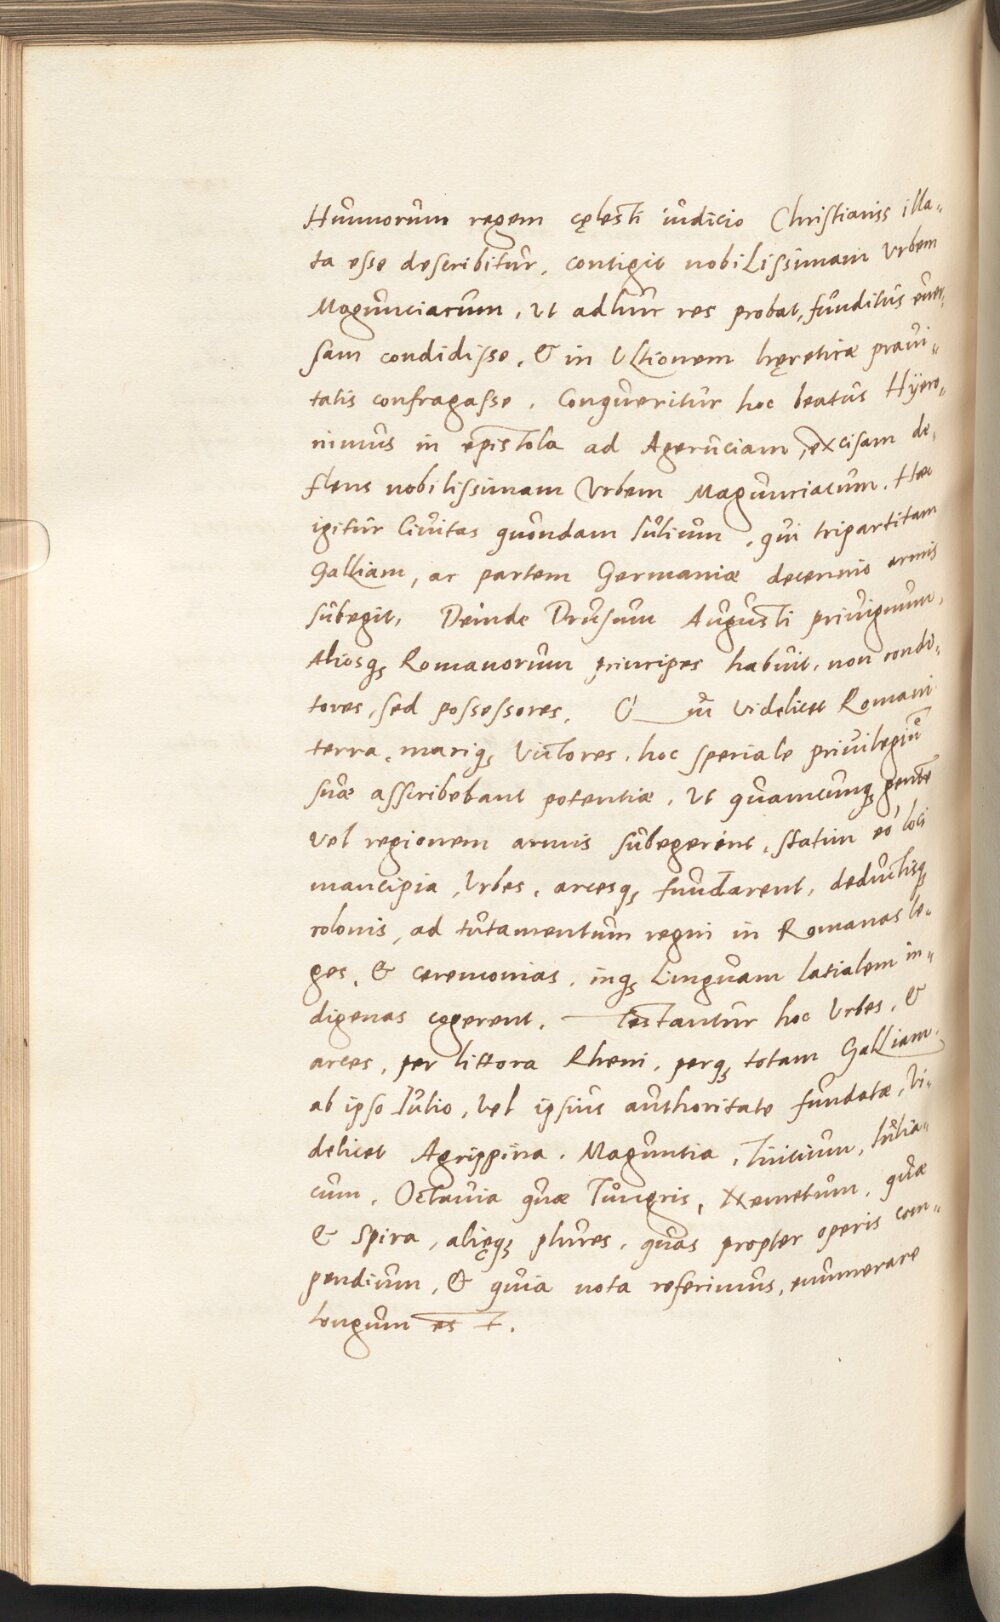 Hunnorum regem cęlesti iudicio Christianis illa-
ta esse describitur, contigit nobilissimam Urbem
Magunciacum, ut adhuc res probat, funditus ever-
sam condidisse, & in Ultionem hęreticæ pravi-
tatis confragasse. Conqueritur hoc beatus Hÿero-
nimus in epistola ad Ageruciam, excisam de-
flens nobilissimam Urbem Magunciacum. Hæc
igitur Civitas quondam Iulium, qui tripartitam
Galliam, ac partem Germaniæ decennio armis
subegit, Deinde Drusum Augusti privignum,
Aliosq; Romanorum principes habuit, non condi-
tores, sed possessores. Cum videlicet Romani
terra, mariq; Victores, hoc speciale privilegiū
suæ asscribebant potentiæ, Ut quamcunq; gentē
vel regionem armis subegerint, statim eo loci
mancipia, Urbes, arcesq; fundarent, deductisq;
colonis, ad tutamentum regni in Romanas le-
ges, & ceremonias, inq; Linguam latialem in-
digenas cogerent. Testantur hoc Urbes, &
arces, per littora Rheni, perq; totam Galliam,
ab ipso Iulio, vel ipsius authoritate fundatæ, Vi-
delicet Agrippina, Maguntia, Tuitium, Iulia-
cum, Octavia quæ Tungris, Nemetum, quæ
& Spira, alięq; plures, quas propter operis com-
pendium, & quia nota referimus, enumerare
longum est.